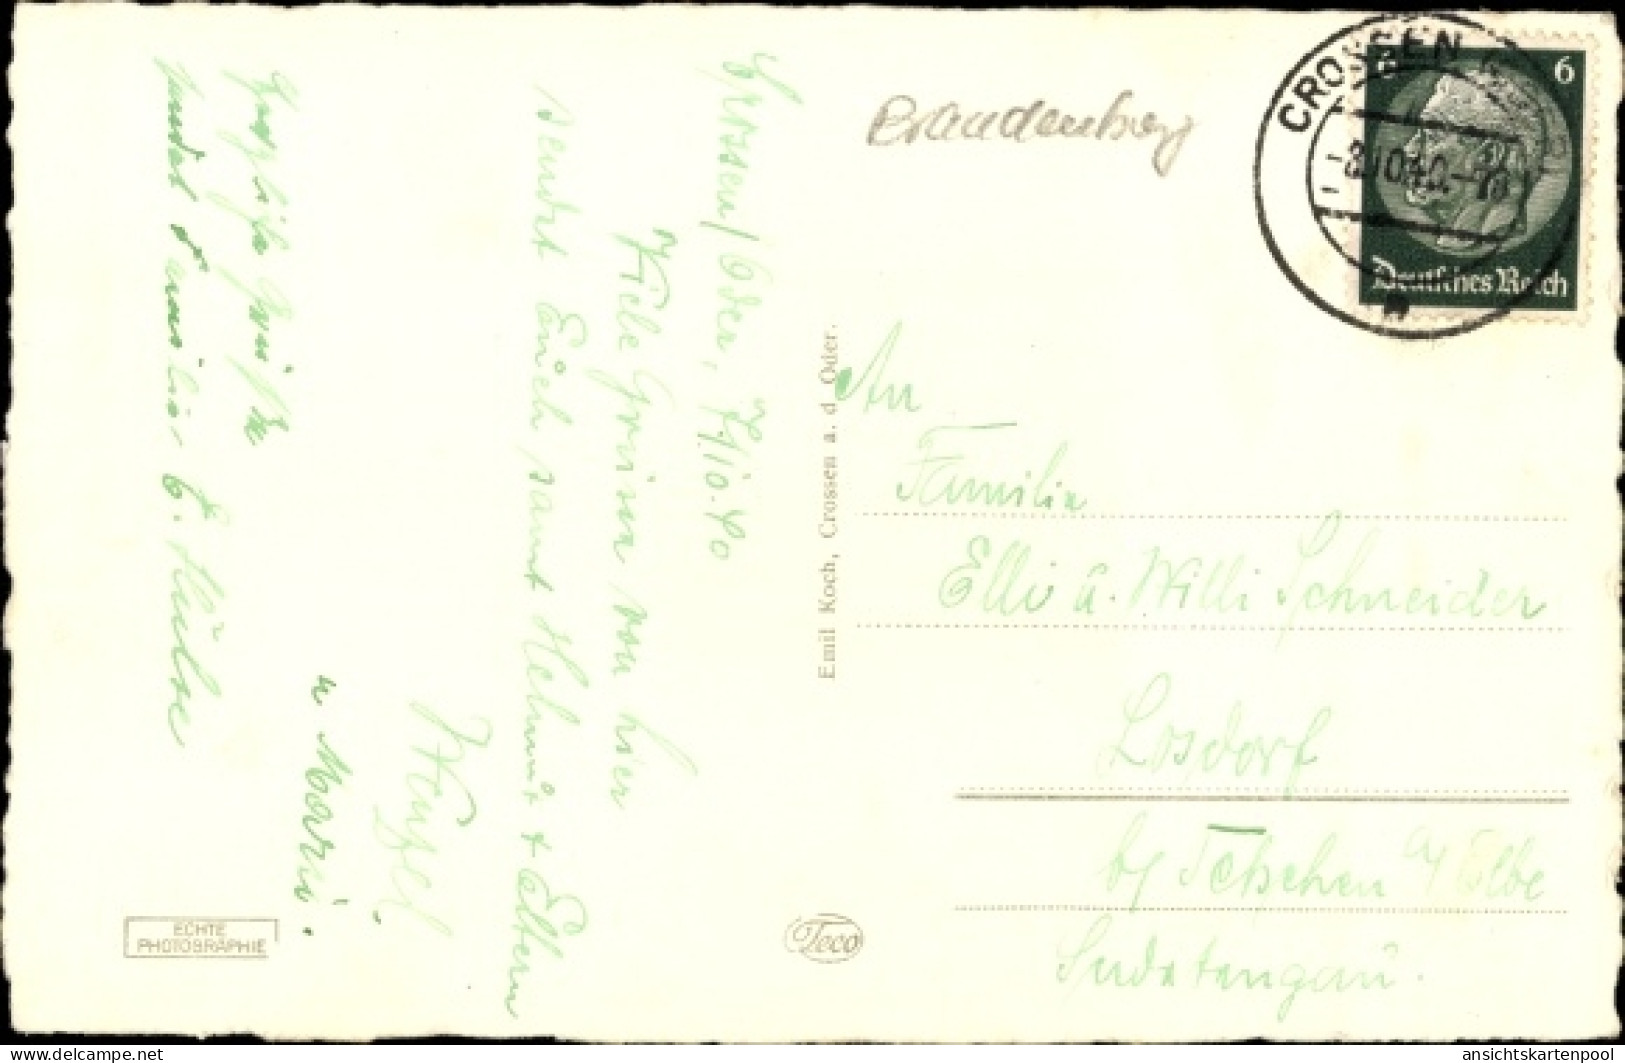 Crossen/Oder, 7.10.40
Viele Grüsse von hier
sendet Euch samt Helmut + Eltern
Wenzel
u
Herzliche Grüße
sendet Familie E. Hülse
Brandenburg
CROSSEN
-8.10.40.-18
6
6
Deutsches Reich
Emil Koch, Crossen a. d. Oder.
An
Familie
Elli u. Willi Schneider
Losdorf
b/ Tetschen a/ Elbe
Sudetengau.
ECHTE
PHOTOGRAPHIE
Teco
www.delcampe.net
ansichtskartenpool